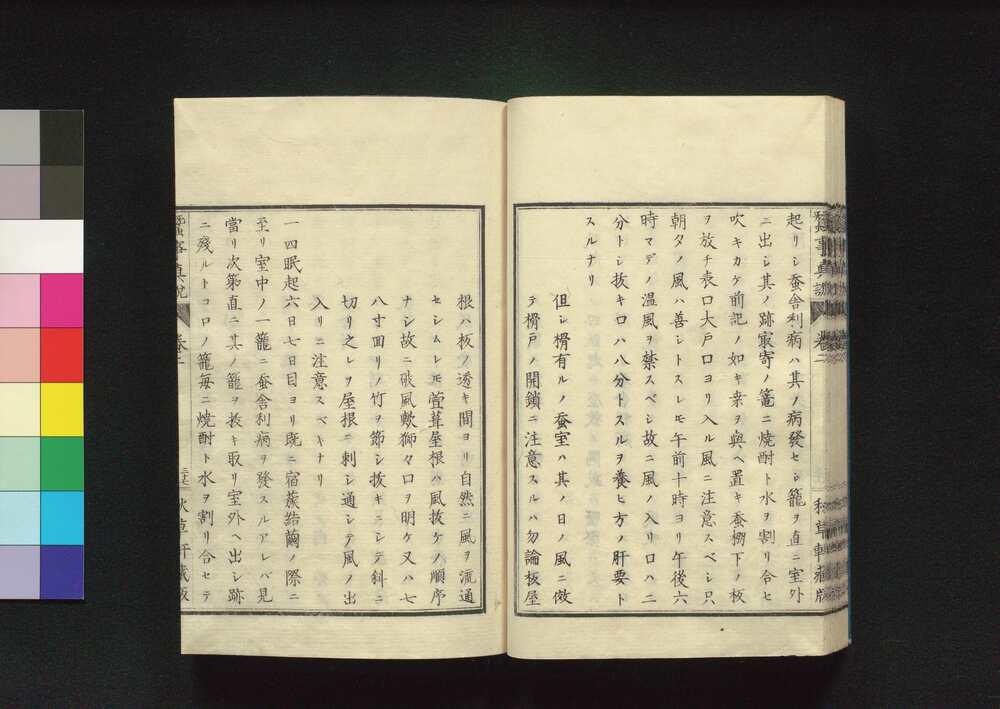 起リシ蚕舎利病ハ其ノ病發セシ籠ヲ直ニ室外
ニ出シ其ノ跡最寄ノ篭ニ焼酎ト水ヲ割リ合セ
吹キカケ前記ノ如キ桒ヲ與ヘ置キ蚕棚下ノ板
ヲ放チ表口大戸口ヨリ入ル風ニ注意スベシ只
朝夕ノ風ハ善シトスレモ午前十時ヨリ午後六
時マデノ温風ヲ禁スベシ故ニ風ノ入リ口ハ二
分トシ拔キ口ハ八分トスルヲ養ヒ方ノ肝要ト
スルナリ
但シ榾有ルノ蚕室ハ其ノ日ノ風ニ傚
テ榾戸ノ開鎖ニ注意スルハ勿論板屋
蠶事真説
卷二
秋草軒蔵版
根ハ板ノ透キ間ヨリ自然ニ風ヲ流通
セシムレモ萱葺屋根ハ風拔ケノ順序
ナシ故ニ破風獅々口ヲ明ケ又ハ七
八寸回リノ竹ヲ節シ拔キニシテ斜ニ
切リ之レヲ屋根ニ刺シ通シテ風ノ出
入リニ注意スベキナリ
一四眠起六日七日目ヨリ既ニ宿蔟結繭ノ際ニ
至リ室中ノ一籠ニ蚕舎利病ヲ發スルアレバ見
當リ次第直ニ其ノ籠ヲ拔キ取リ室外ヘ出シ跡
ニ殘ルトコロノ籠毎ニ焼酎ト水ヲ割リ合セテ
蠶事真説
卷二
秋草軒蔵版